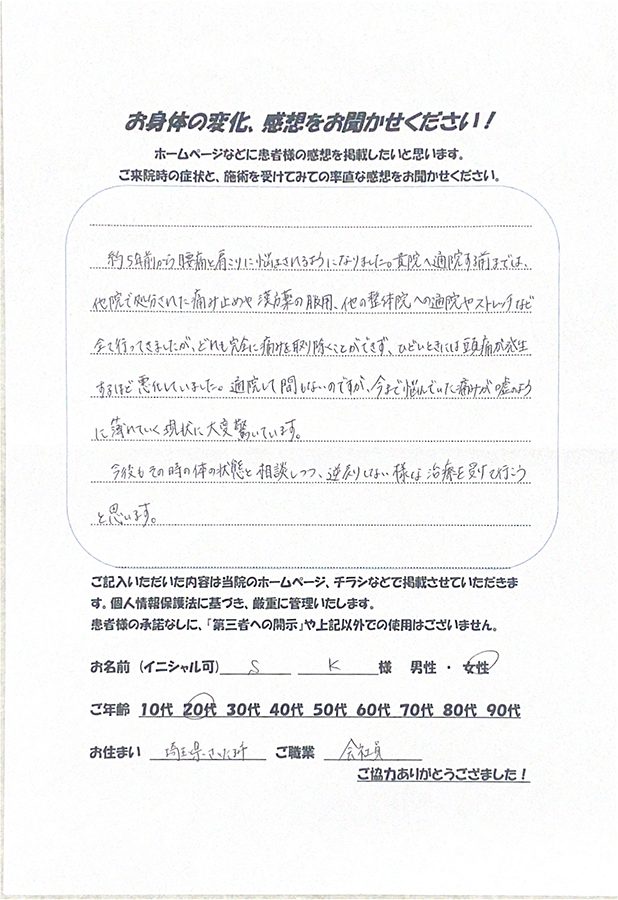 お身体の変化、感想をお聞かせください！
ホームページなどに患者様の感想を掲載したいと思います。
ご来院時の症状と、施術を受けてみての率直な感想をお聞かせください。
約5年前から腰痛と肩こりに悩まされるようになりました。貴院へ通院する前までは、
他院で処分された痛み止めや漢方薬の服用、他の整体院への通院やストレッチなど
全て行ってきましたが、どれも完全に痛みを取り除くことができず、ひどいときには頭痛が発生
するほど悪化していました。通院して間もないのですが、今まで悩んでいた痛みが嘘のよう
に薄れていく現状に大変驚いています。
今後もその時の体の状態と相談しつつ、逆戻りしない様な治療を受けて行こう
と思います。
ご記入いただいた内容は当院のホームページ、チラシなどで掲載させていただきま
す。個人情報保護法に基づき、厳重に管理いたします。
患者様の承諾なしに、「第三者への開示」や上記以外での使用はございません。
お名前（イニシャル可） S K 様 男性 ・ 女性
ご年齢 10代 20代 30代 40代 50代 60代 70代 80代 90代
お住まい 埼玉県 ご職業 会社員
ご協力ありがとうござました！